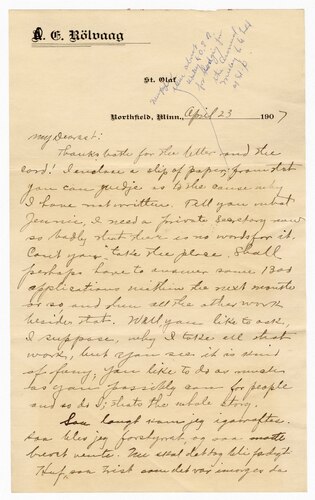 A. E. Rölvaag
St. Olaf
Northfield, Minn., April 23 1907
My Dearest:
Thanks both for the letter and the
card! I enclose a slip of paper; from that
you can judge as to the cause why
I have not written. Tell you what
Jennie, I need a private secretary now
so badly that there is no words for it.
Can't you take the place. Shall
perhaps have to answer some 1300
applications within the next month
or so and then all the other work
besides that. Well you like to ask,
I suppose, why I take all that
work, but you see it is kind
of funny, you like to do as much
as you possibly can for people
and so do I; that's the whole story.
Saa langt kom jeg igaaraftes.
saa blev jeg forstyrret, og saa maatte
brevet vente. Nu skal det bli færdigt
Huf, saa trist som det var imorges da